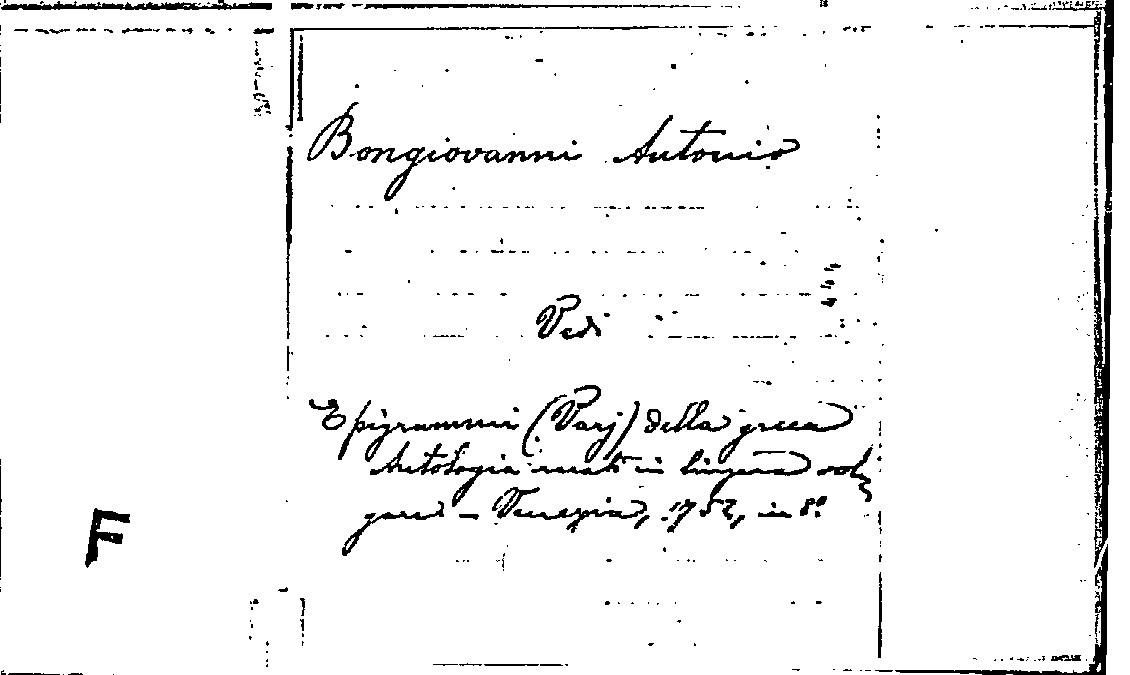 Bongiovanni Antonio
Vedi
Epigrammi (Varj) della greca
Antologia recati in lingua vol-
gare - Venezia, 1752, in 8º
F